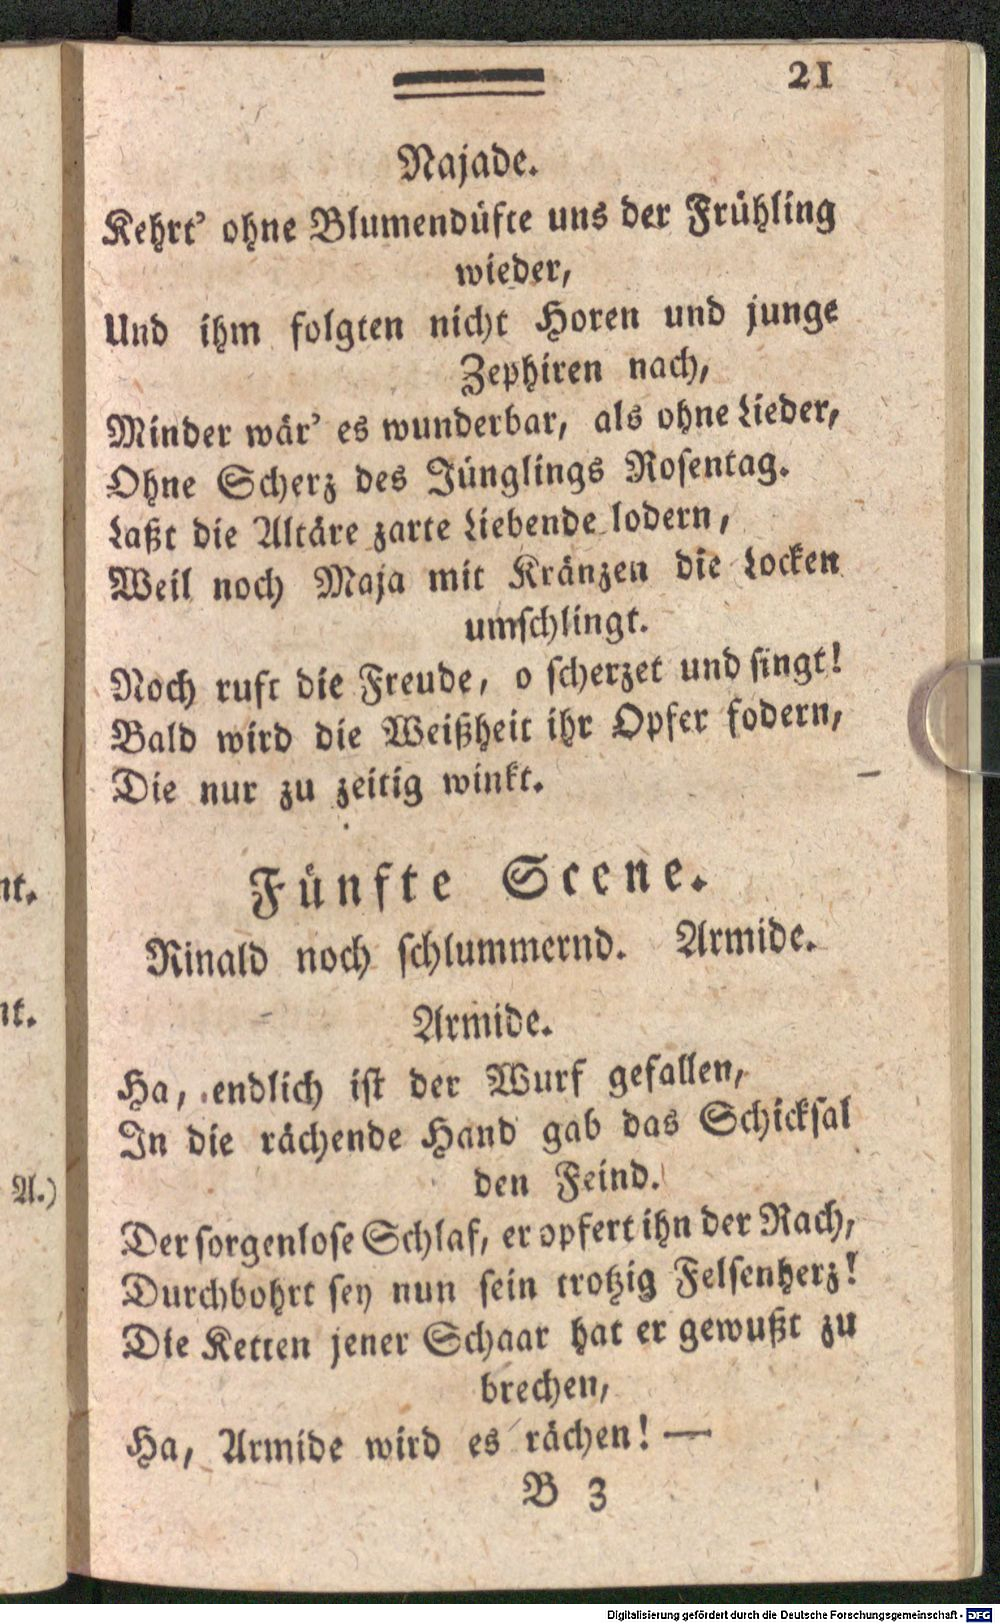 21
Najade.
Kehrt' ohne Blumendüfte uns der Frühling
wieder,
Und ihm folgten nicht Horen und junge
Zephiren nach,
Minder wär' es wunderbar, als ohne Lieder,
Ohne Scherz des Jünglings Rosentag.
Laßt die Altäre zarte Liebende lodern,
Weil noch Maja mit Kränzen die Locken
umschlingt.
Noch ruft die Freude, o scherzet und singt!
Bald wird die Weißheit ihr Opfer fodern,
Die nur zu zeitig winkt.
Fünfte Scene.
Rinald noch schlummernd. Armide.
Armide.
Ha, endlich ist der Wurf gefallen,
In die rächende Hand gab das Schicksal
den Feind.
Der sorgenlose Schlaf, er opfert ihn der Rach,
Durchbohrt sey nun sein trotzig Felsenherz!
Die Ketten jener Schaar hat er gewußt zu
brechen,
Ha, Armide wird es rächen! —
B 3
nt.
nt.
A.)
Digitalisierung gefördert durch die Deutsche Forschungsgemeinschaft - DFG